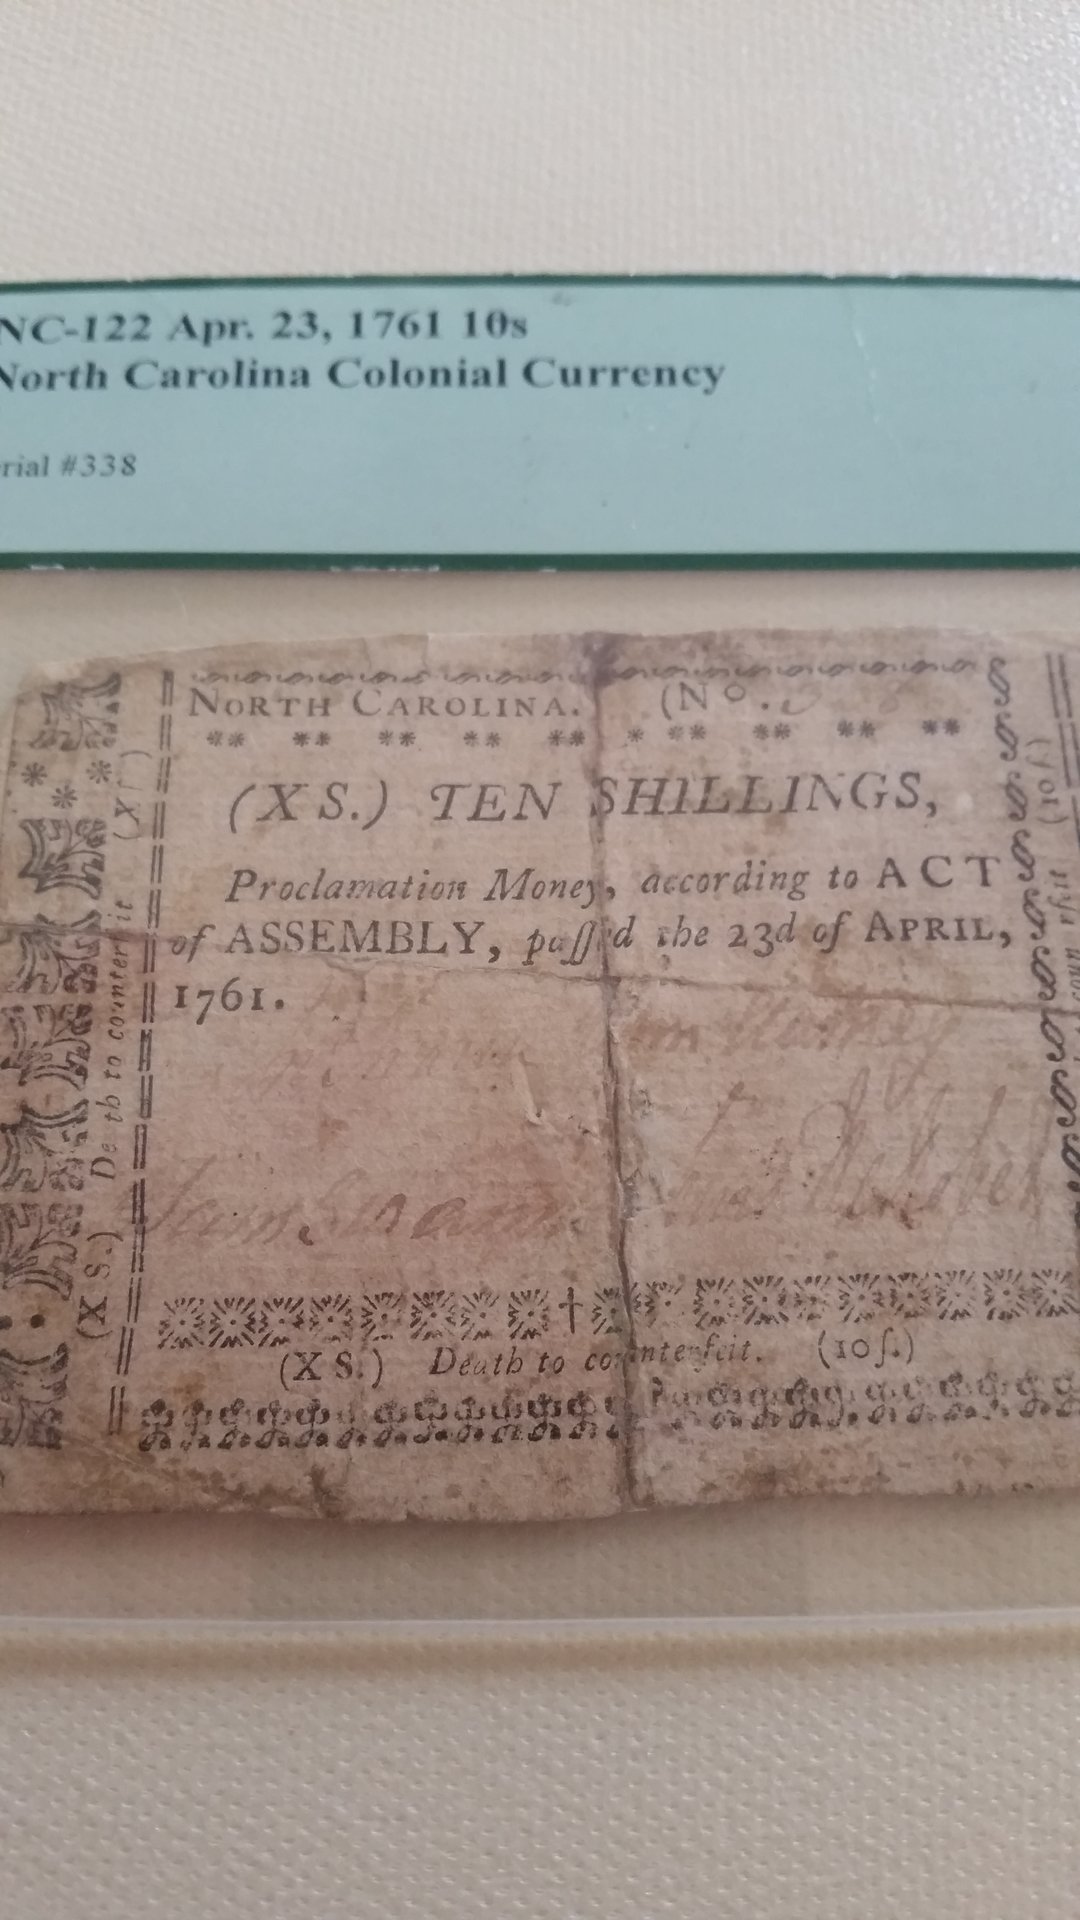 NC-122 Apr. 23, 1761 10s
North Carolina Colonial Currency
rial #338
NORTH CAROLINA. (No.
** ** ** ** ** * ** ** ** **
(X S.) TEN SHILLINGS,
Proclamation Money, according to ACT
of ASSEMBLY, paſſ d the 23d of APRIL,
1761.
(X S.) Death to counterfeit. (10ſ.)
(X S.) De th to counterfeit (X ſ)
(10ſ)